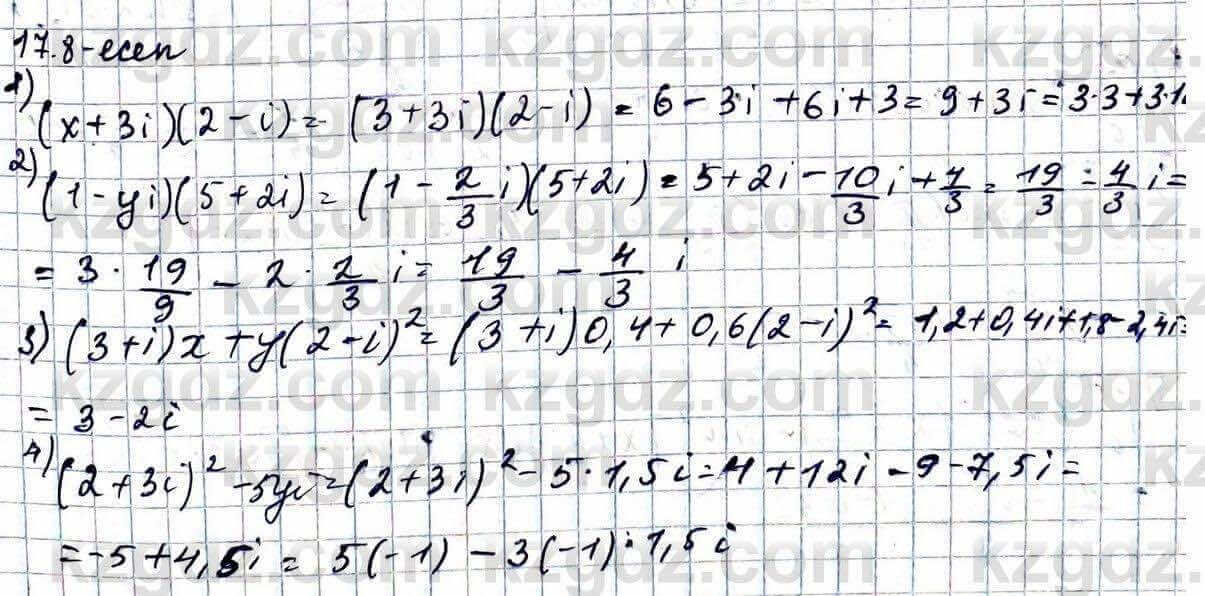 17.8-есеп
1) (x+3i)(2-i) = (3+3i)(2-i) = 6-3i+6i+3 = 9+3i = 3·3+3·1.
2) (1-yi)(5+2i) = (1-2/3 i)(5+2i) = 5+2i-10/3 i+4/3 = 19/3 - 4/3 i =
= 3·19/9 - 2·2/3 i = 19/3 - 4/3 i
3) (3+i)x+y(2-i)² = (3+i)0,4+0,6(2-i)² = 1,2+0,4i+1,8-2,4i=
= 3-2i
4) (2+3i)²-5yi=(2+3i)²-5·1,5i=4+12i-9-7,5i=
=-5+4,5i = 5(-1)-3(-1)·1,5i
kzgdz.com